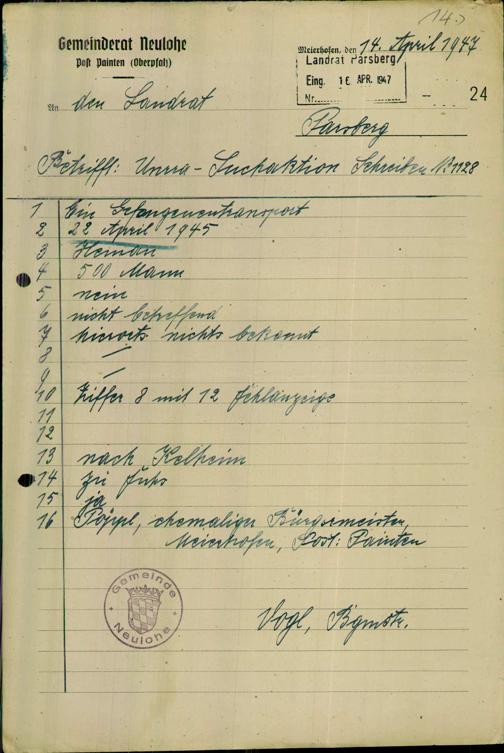 14.)
Gemeinderat Neulohe
Post Painten (Oberpfalz)
Meierhofen, den 14. April 1947
Landrat Parsberg
Eing. 16 APR. 1947
Nr.
24
An den Landrat
Parsberg
Betrifft: Unrra-Suchaktion Schreiben Nr 1128
1 Ein Gefangenentransport
2 22 April 1945
3 Heman
4 500 Mann
5 nein
6 nicht betreffend
7 hierorts nichts bekannt
8 /
9 /
10 Ziffer 8 mit 12 Fehlanzeige
11
12
13 nach Kelheim
14 zu Fuhs
15 ja
16 Pöppl, ehemaliger Bürgermeister,
Meierhofen, Post: Painten
Gemeinde
Neulohe
Vogl, Bgmstr.